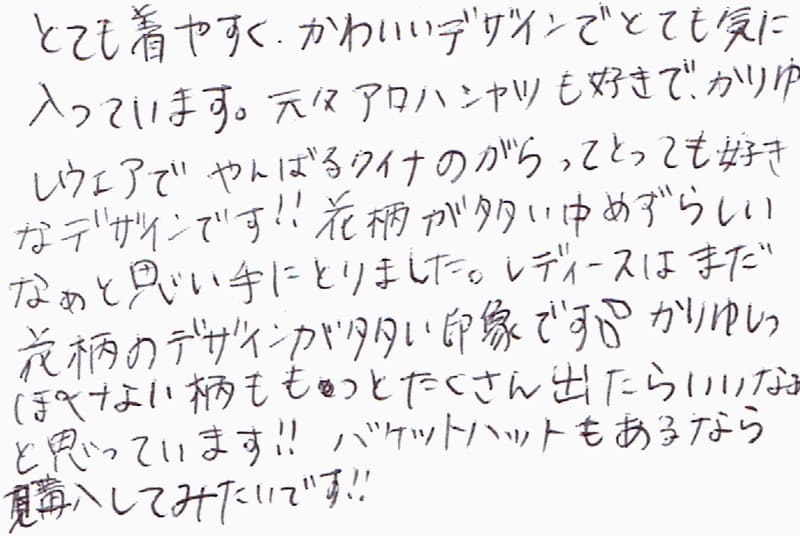 とても着やすく、かわいいデザインでとても気に
入っています。元々アロハシャツも好きで、かりゆ
しウェアでやんばるクイナのがらってとっても好き
なデザインです!! 花柄が多い中めずらしい
なぁと思い手にとりました。レディースはまだ
花柄のデザインが多い印象です かりゆしっ
ぽくない柄ももっとたくさん出たらいいなぁ
と思っています!! バケットハットもあるなら
購入してみたいです!!